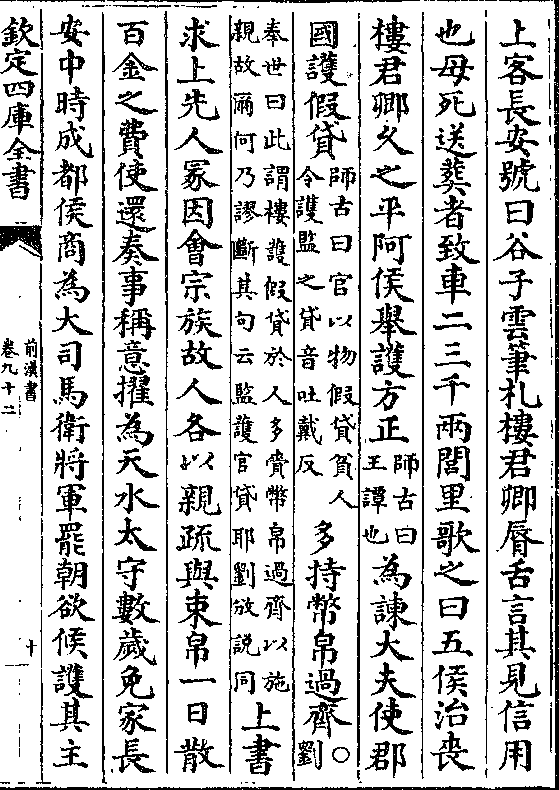 上客長安號曰谷子雲筆札樓君卿脣舌言其見信用
也母死送葬者致車二三千兩閭里歌之曰五侯治喪
樓君卿久之平阿侯舉護方正師古曰王譚也為諫大夫使郡
國護假貸師古曰官以物假貸貧人令護監之貸音吐戴反多持幣帛過齊○劉
奉世曰此謂樓護假貸於人多賫幣帛過齊以施親故爾何乃謬斷其句云監護官貸耶劉攽說同上書
求上先人冡因會宗族故人各以親疏與束帛一日散
百金之費使還奏事稱意擢為天水太守數歲免家長
安中時成都侯商為大司馬衛將軍罷朝欲候護其主
欽定四庫全書
前漢書
卷九十二
十